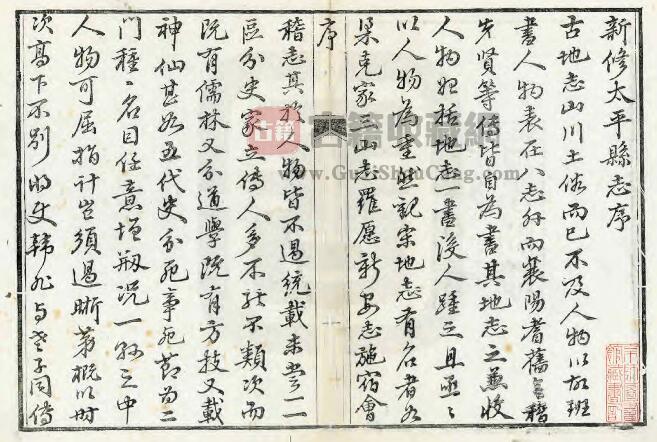 新修太平縣志序
古地志山川土俗而已不及人物以故班
書人物表在八志外而襄陽耆舊會稽
先賢等傳皆自為書其地志之兼收
人物昉括地志一書後人踵之且亟亟
以人物為重然觀宋地志有名者如
梁克家三山志羅愿新安志施宿會
序
稽志其於人物皆不過統載未嘗一一
區分史家立傳人多不能不類次而
既有儒林又分道學既有方技又載
神仙甚如五代史分死事死節為二
門種種名目任意增刱況一縣之中
人物可屈指計豈須過晰第概以時
次高下不別將史韓非与老子同傳
古籍
古籍收藏網
www.GuJiShouCang.com